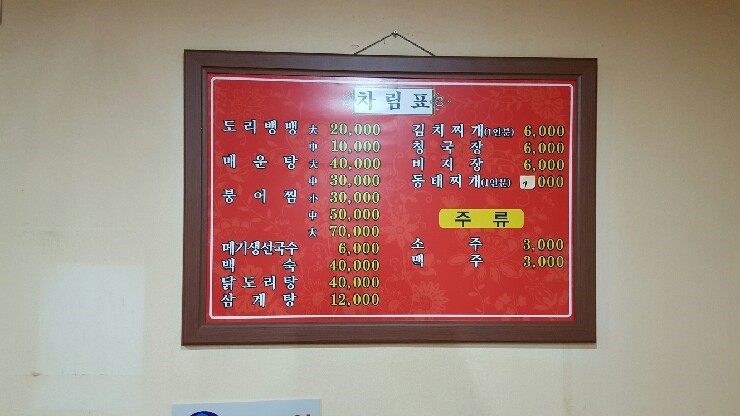 차림표
도리뱅뱅 大 20,000
中 10,000
매운탕 大 40,000
中 30,000
붕어찜 小 30,000
中 50,000
大 70,000
메기생선국수 6,000
백숙 40,000
닭도리탕 40,000
삼계탕 12,000
김치찌개(1인분) 6,000
청국장 6,000
비지장 6,000
동태찌개(1인분) 7,000
주류
소주 3,000
맥주 3,000